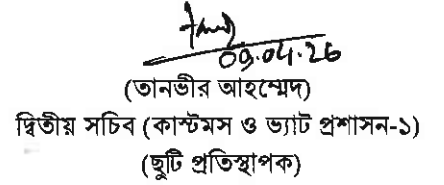 09.04.26
(তানভীর আহম্মেদ)
দ্বিতীয় সচিব (কাস্টমস ও ভ্যাট প্রশাসন-১)
(ছুটি প্রতিস্থাপক)